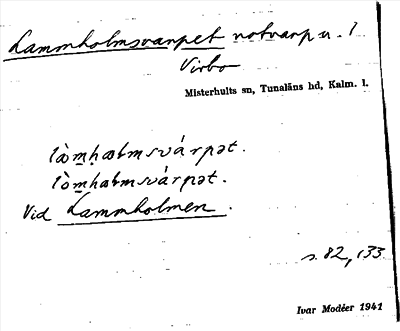 Lammholmsvarpet notvarp u. l
Virbo
Misterhults sn, Tunaläns hd, Kalm. l.
làm̥ḥəlmsvárpət.
lòm̥ḥəlmsvárpət.
Vid Lammholmen.
s. 82, 133
Ivar Modéer 1941